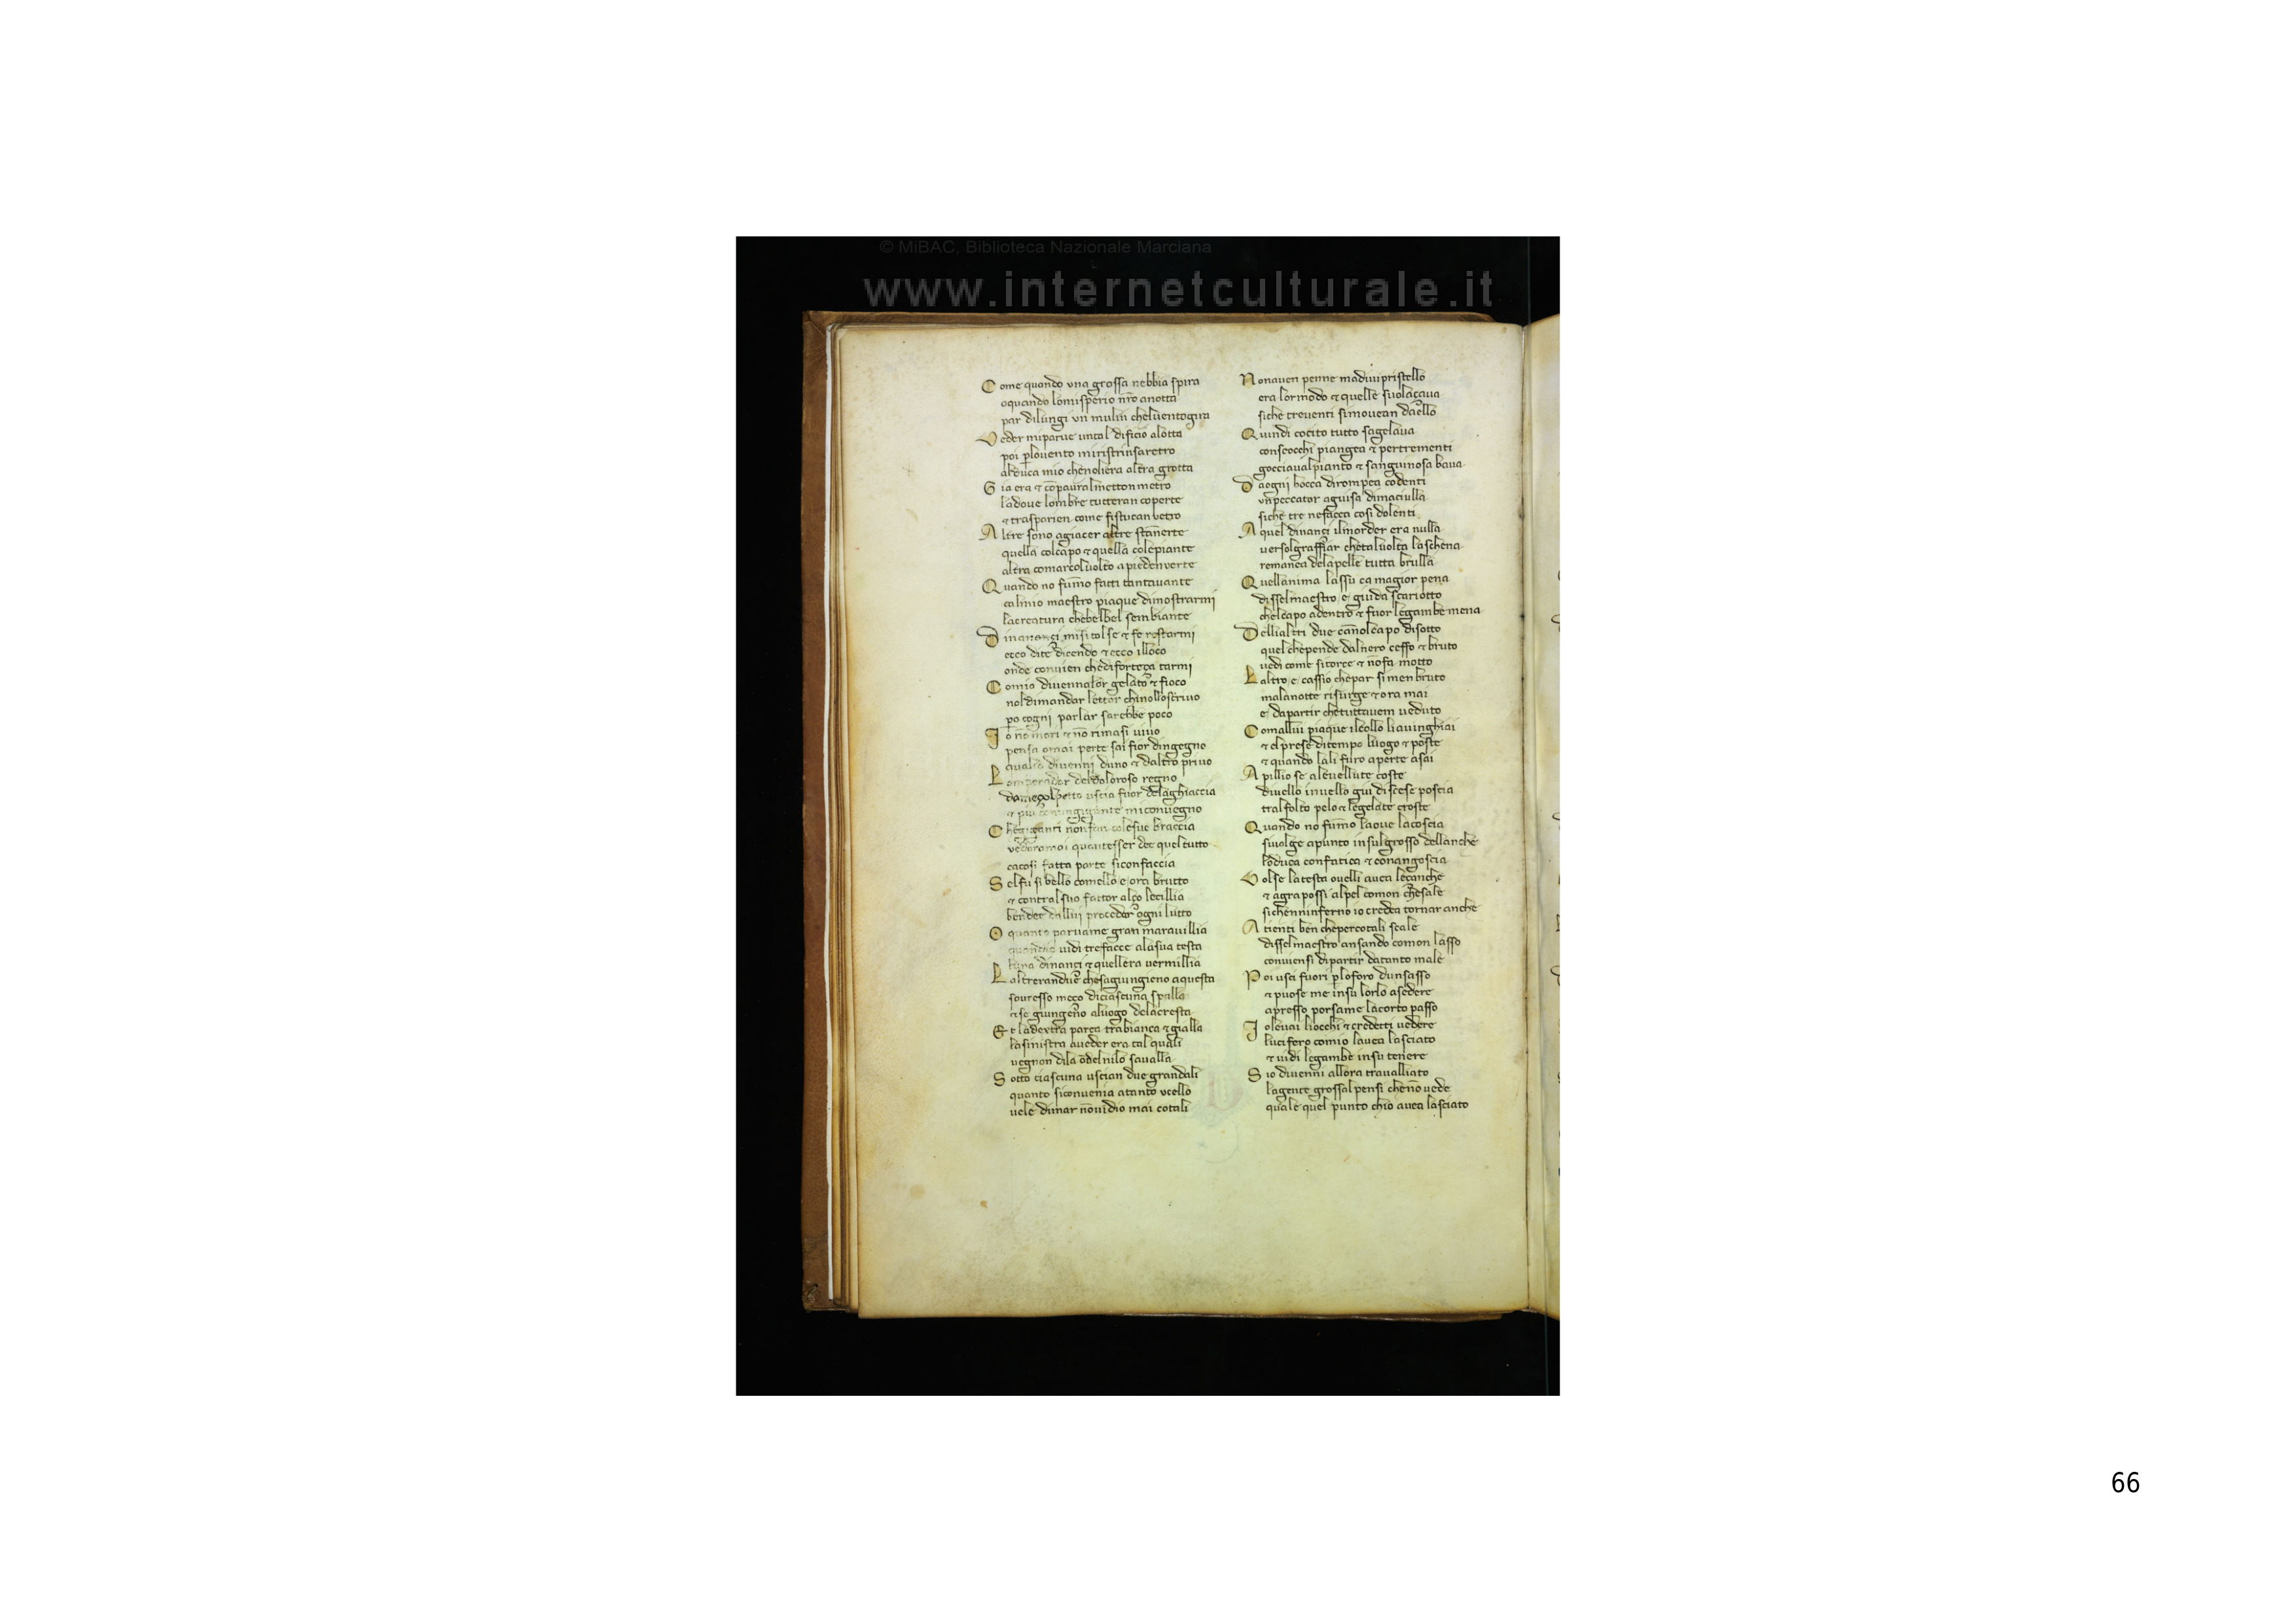 © MiBAC. Biblioteca Nazionale Marciana
www.internetculturale.it
Come quando vna grossa nebbia spira
oquando lomisperio nr̅o anotta
par dilungi vn mulin cheluentogira
Veder miparue untal dificio alotta
poi p̱louento miristrinsaretro
alduca mio chenoliera altra grotta
Gia era ⁊ co̅pauralmetton metro
ladoue lombre tutteran coperte
⁊ trasparien come fistucan vetro
Altre sono agiacer altre sta̅nerte
quella colcapo ⁊ quella colepiante
altra comarcoluolto apiedenuerte
Quando no fum̅o fatti tantauante
calmio maestro piaque dimostrarmi
lacreatura chebelbel sembiante
Dinanançi misitolse ⁊ fe restarmi
ecco dite dicendo ⁊ ecco illoco
onde conuien chediforteça tarmi
Comio diuennalor gelato ⁊ fioco
noldimandar lettor chinolloscriuo
po cogni parlar sarebbe poco
Io no̅ mori ⁊ no̅ rimasi uiuo
pensa omai perte sai fior dingegno
qualio diuenni duno ⁊ daltro priuo
Lomperador deldoloroso regno
uscia fuor delaghiaccia
⁊ piu miconuegno
Che giganti non fan colesue braccia
quantesser dee quel tutto
cacosi fatta parte siconfaccia
Selfu si bello comello e ora brutto
⁊ contralsuo fattor alço lecillia
bendee dallui proceder ogni lutto
O quanto paruame gran marauillia
quandio uidi trefacce alasua testa
luna dinançi ⁊ quellera vermillia
Laltrerandue chesagiungieno aquesta
souresso meço diciascuna spalla
⁊ se giungeno aluogo delacresta
Et ladextra parea trabianca ⁊ gialla
lasinistra aueder era tal quali
uegnon dila o̅delnilo saualla
Sotto ciascuna uscian due grandali
quanto siconuenia atanto vcello
uele dimar no̅uidio mai cotali
Nonauen penne madiuipristello
era lormodo ⁊ quelle suolaçaua
siche treuenti simouean daello
Quindi cocito tutto sagelaua
conseocchi piangea ⁊ pertrementi
gocciaualpianto ⁊ sanguinosa baua
Daogni bocca dirompea codenti
vn̅peccator aguisa dimaciulla
siche tre nefacea cosi dolenti
Aquel dinançi ilmorder era nulla
versolgraffiar chetaluolta laschena
romanea delapelle tutta brulla
Quellanima lassu ca magior pena
disselmaestro e giuda scariotto
chelcapo adentro ⁊ fuor legambe mena
Dellialtri due ca̅nolcapo disotto
quel chepende dalnero ceffo e bruto
uedi come sitorce ⁊ no̅fa motto
Laltro e cassio chepar si menbruto
malanotte risurge ⁊ ora mai
e dapartir chetuttauem ueduto
Comallui piaque ilcollo liauinghiai
⁊ el prese ditempo luogo ⁊ poste
⁊ quando lali furo aperte asai
Apillio se aleuellute coste
diuello inuello giu discese poscia
tralfolto pelo ⁊ legelate croste
Quando no fum̅o laoue lacoscia
siuolge apunto insulgrosso dellanche
loduca confatica ⁊ conangoscia
Volse latesta ouelli auea leçanche
⁊ agrapossi alpel comon chesale
sichenninferno io credea tornar anche
Atienti ben chepercotali scale
disselmaestro ansando comon lasso
conuiensi dipartir datanto male
Poi usci fuori p̱loforo dunsasso
⁊ puose me insu lorlo asedere
apresso porsame lacorto passo
Io leuai liocchi ⁊ credetti uedere
lucifero comio lauea lasciato
⁊ uidi legambe insu tenere
Sio diuenni allora traualliato
lagente grossalpensi cheno̅ uede
quale quel punto chio auea lasciato
66